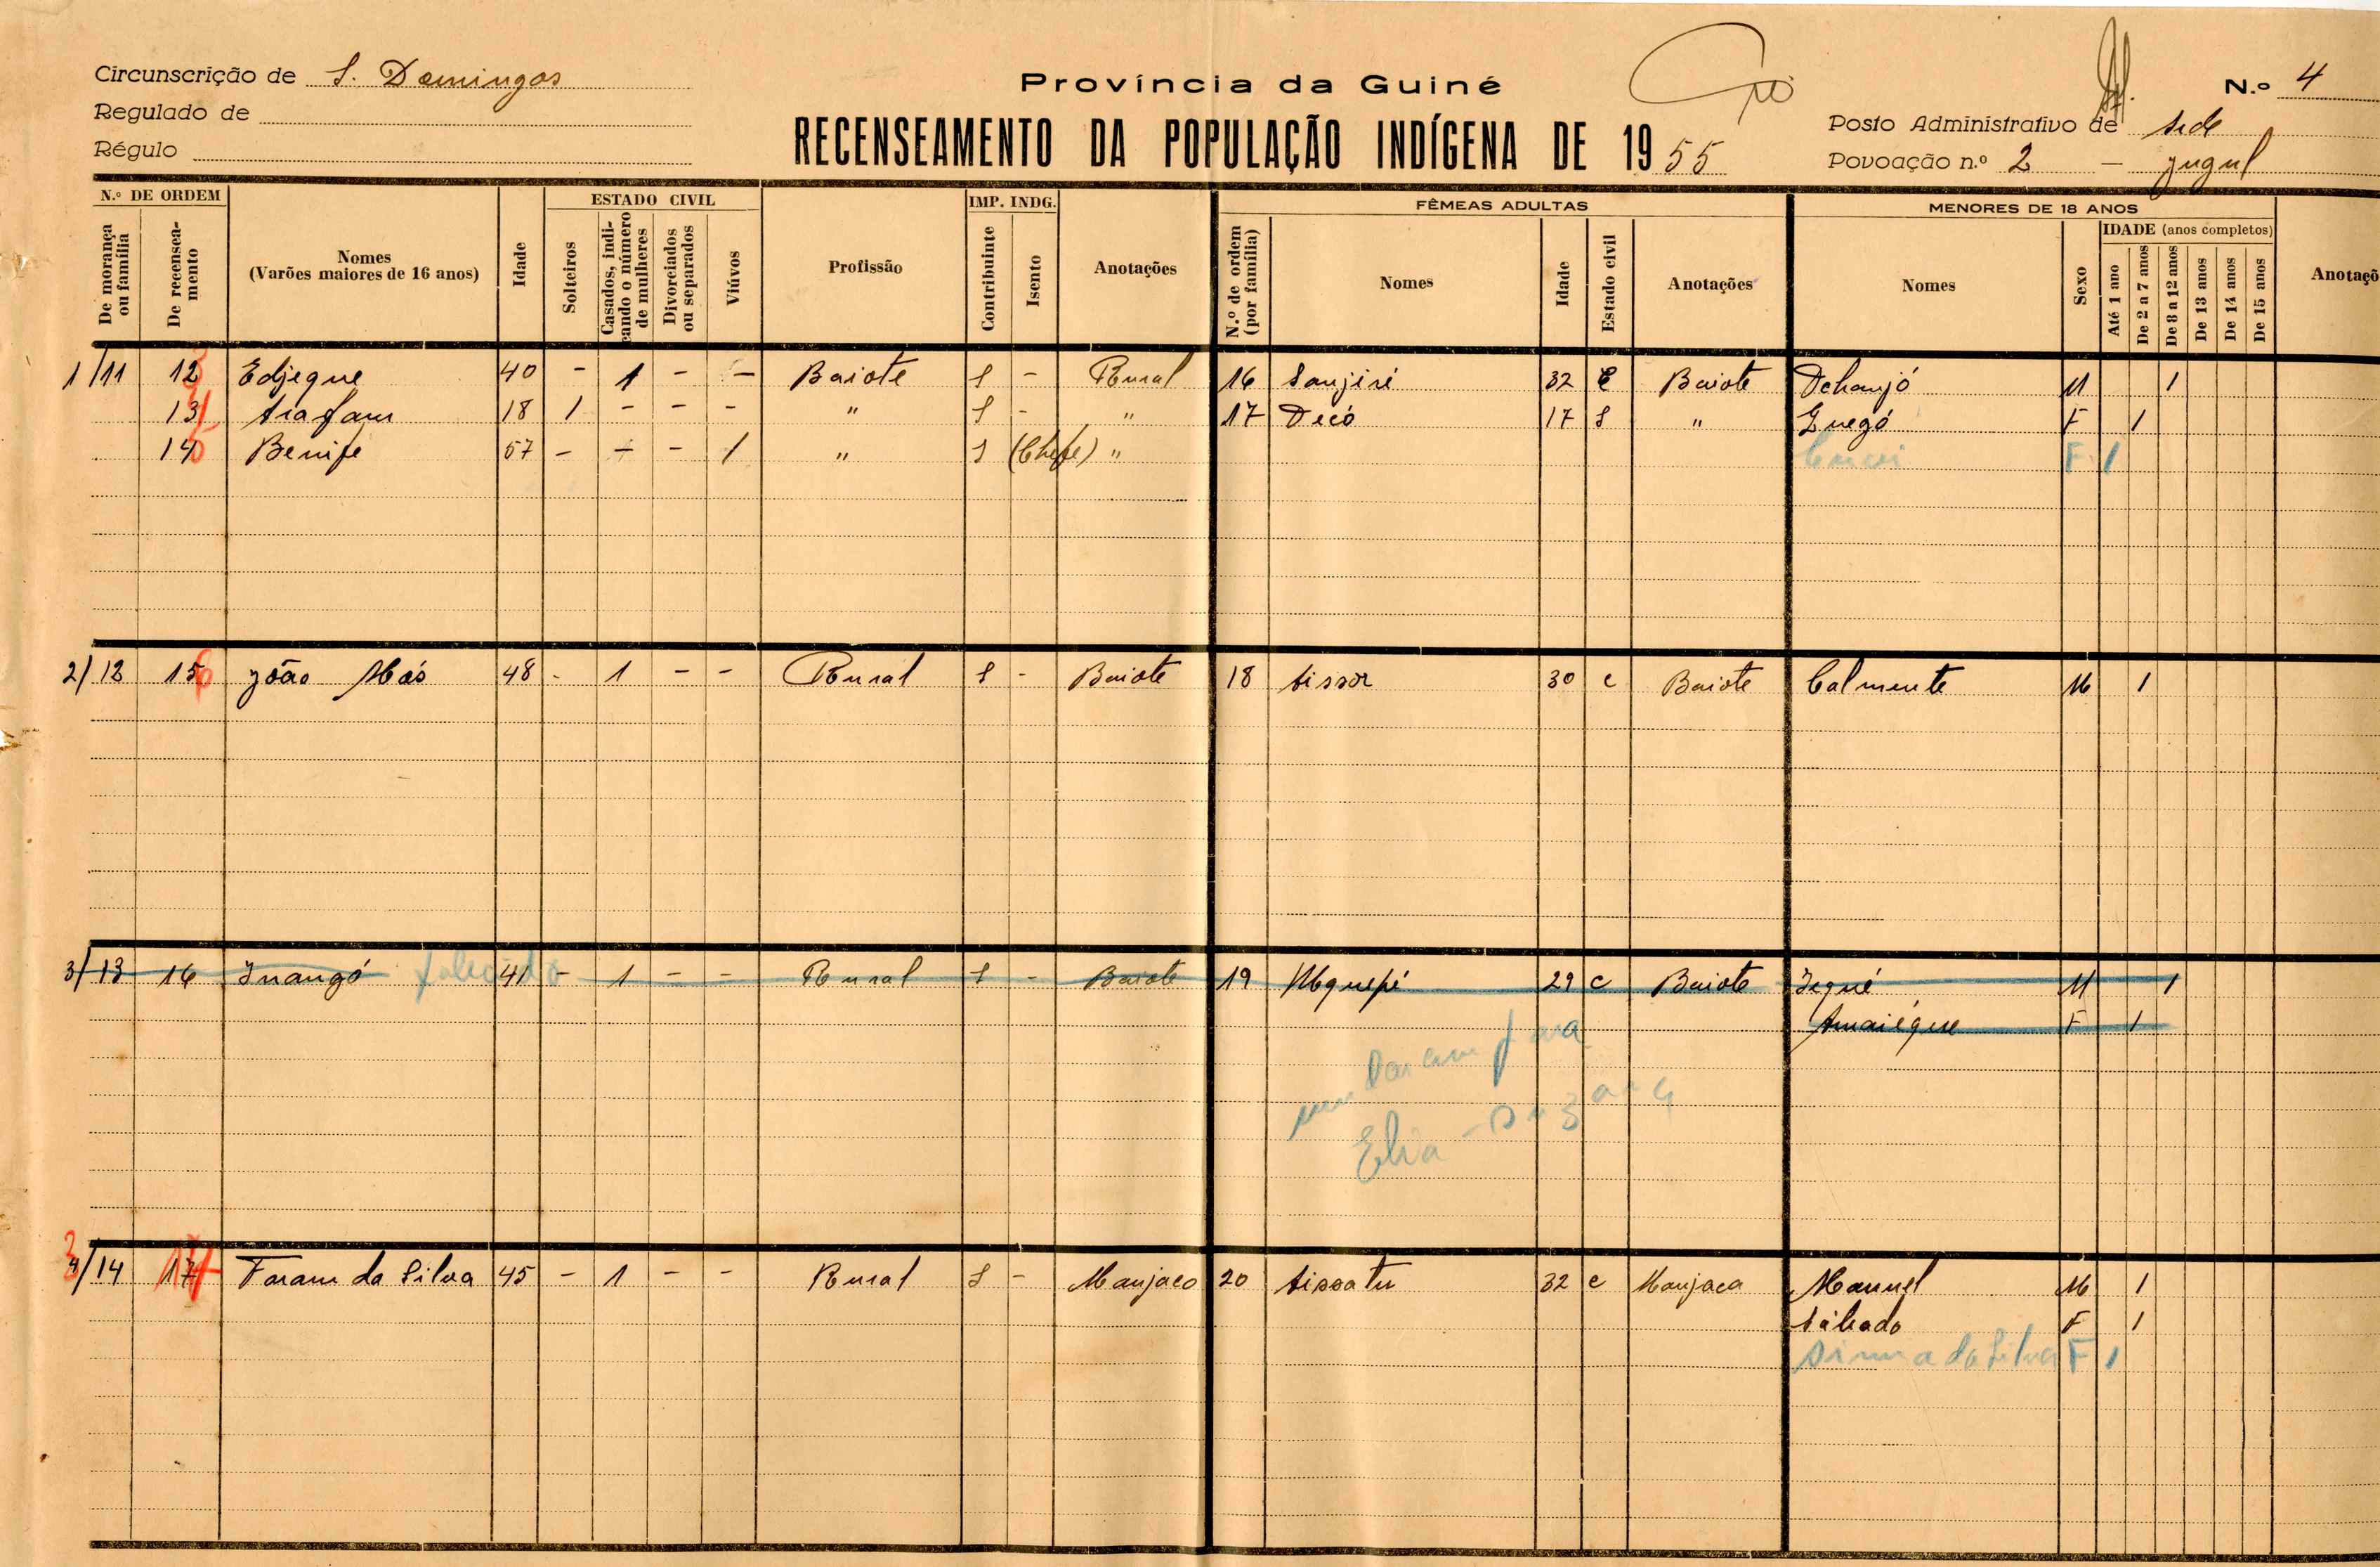 Circunscrição de S. Domingos
Regulado de
Régulo
Província da Guiné
RECENSEAMENTO DA POPULAÇÃO INDÍGENA DE 1955
N.º 4
Posto Administrativo de sede
Povoação n.º 2 — Jugul
N.º DE ORDEM
De morança ou família
De recenseamento
Nomes
(Varões maiores de 16 anos)
Idade
ESTADO CIVIL
Solteiros
Casados, indicando o número de mulheres
Divorciados ou separados
Viúvos
Profissão
IMP. INDG.
Contribuinte
Isento
Anotações
FÊMEAS ADULTAS
N.º de ordem (por família)
Nomes
Idade
Estado civil
Anotações
MENORES DE 18 ANOS
Nomes
Sexo
IDADE (anos completos)
Até 1 ano
De 2 a 7 anos
De 8 a 12 anos
De 13 anos
De 14 anos
De 15 anos
Anotaçõ
1/11 12 Edjeque 40 - 1 - - Baiote S - Rural 16 Sanjiré 32 C Baiote Dchanjó M 1
13 18 1 - - - " S - " 17 Decó 17 S " F 1
14 Benife 57 - - - 1 " S (Chefe) " F 1
2/12 15 João Más 48 - 1 - - Rural S - Baiote 18 Aissor 30 c Baiote Calmente M 1
3/13 16 Inangó falecido 41 - 1 - - Rural S - Baiote 19 29 c Baiote M 1
Amaiéque F 1
mudaram para
Elia
4/14 17 Faram da Silva 45 - 1 - - Rural S - Manjaco 20 Aissatu 32 c Manjaca Manuel M 1
Sábado F 1
da Silva F 1